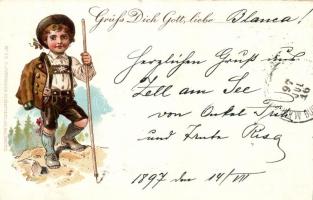 Grüß Dich Gott, liebe Blanca!
Herzlichen Gruß aus
Zell am See
von Onkel Fritz
und Tante Resa
1897 den 14/VII
97
JUL
16